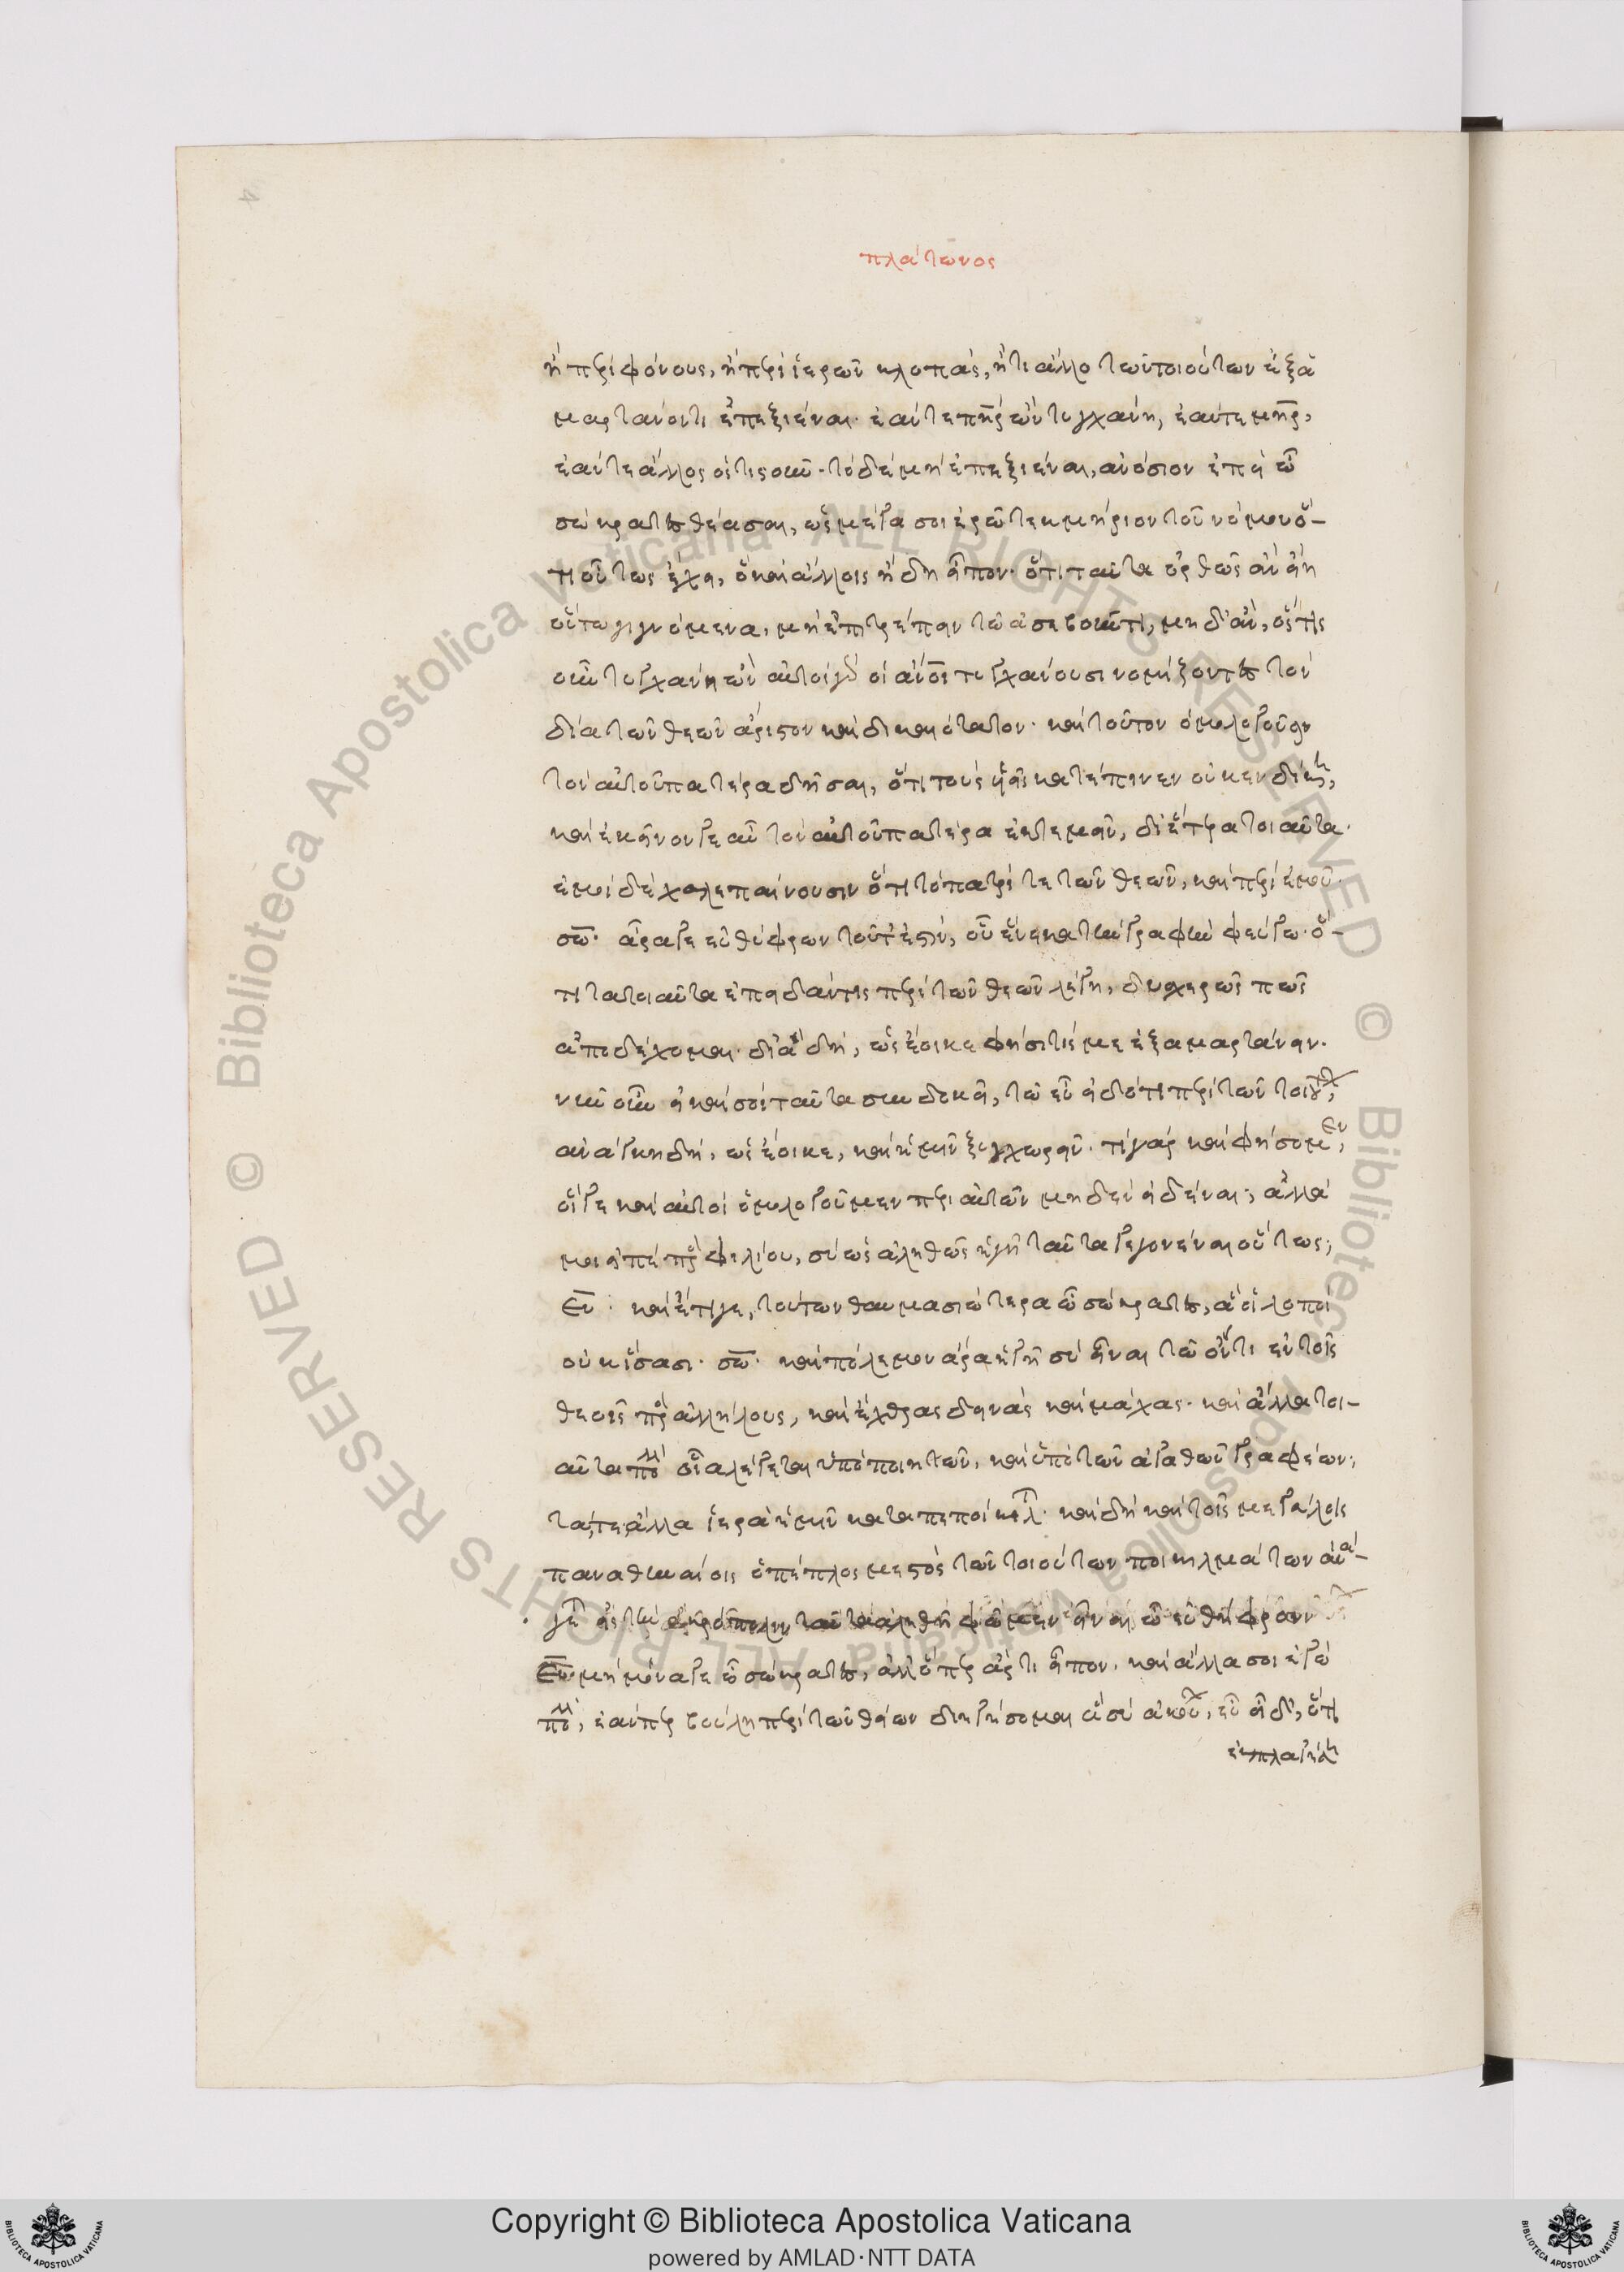 πλάτωνος
ἢ περὶ φόνους, ἢ περὶ ἱερῶν κλοπὰς, ἤ τι ἄλλο τῶν τοιούτων ἐξα
μαρτάνοντι ἐπεξιέναι· ἐάν τε πατὴρ ὢν τυγχάνη, ἐάν τε μήτηρ,
ἐάν τε ἄλλος ὁστισοῦν· τὸ δὲ μὴ ἐπεξιέναι, ἀνόσιον ἐπεὶ ὦ
σώκρατες θέασαι, ὡς μέγα σοι ἐρῶ τεκμήριον τοῦ νόμου ὅ-
τι οὕτως ἔχει, ὃ καὶ ἄλλοις ἤδη εἶπον· ὅτι ταῦτα ὀρθῶς ἂν εἴη
οὕτω γιγνόμενα, μὴ ἐπιτρέπειν τῶ ἀσεβοῦντι, μηδ' ἂν, ὅστις
οὖν τυγχάνη ὢν αὐτοὶ γὰρ οἱ ἄνθρωποι τυγχάνουσι νομίζοντες τὸν
δία τῶν θεῶν ἄριστον καὶ δικαιότατον· καὶ τοῦτον ὁμολογοῦσιν
τὸν αὐτοῦ πατέρα δῆσαι, ὅτι τοὺς υἱεῖς κατέπινεν οὐκ ἐν δίκη,
καὶ ἐκεῖνόν γε αὖ τὸν αὐτοῦ πατέρα ἐκτεμεῖν, δι' ἕτερα τοιαῦτα·
ἐμοὶ δὲ χαλεπαίνουσιν ὅτι τῶ πατρί τε τῶν θεῶν, καὶ περὶ ἐμοῦ.
σω· ἆρά γε εὐθύφρων τοῦτ' ἐστὶν, οὗ ἕνεκα τὴν γραφὴν φεύγω· ὅ-
τι τὰ τοιαῦτα ἐπειδάν τις περὶ τῶν θεῶν λέγη, δυσχερῶς πως
ἀποδέχομαι· δι' ἃ δὴ, ὡς ἔοικε φήσει τίς με ἐξαμαρτάνειν·
νῦν οὖν εἰ καὶ σοὶ ταῦτα συνδοκεῖ, τῶ εὖ εἰδότι περὶ τῶν τοιούτων,
ἀνάγκη δὴ, ὡς ἔοικε, καὶ ἡμῖν ξυγχωρεῖν· τί γὰρ καὶ φήσομεν,
οἵ γε καὶ αὐτοὶ ὁμολογοῦμεν περὶ αὐτῶν μηδὲν εἰδέναι; ἀλλά
μοι εἰπὲ πρὸς φιλίου, σὺ ὡς ἀληθῶς ἡγῆ ταῦτα γεγονέναι οὕτως;
ευ· καὶ ἔτι γε, τούτων θαυμασιώτερα ὦ σώκρατες, ἃ οἱ λοποὶ
οὐκ ἴσασι· σω· καὶ πόλεμον ἆρα ἡγῆ σὺ εἶναι τῶ ὄντι ἐν τοῖς
θεοῖς πρὸς ἀλλήλους, καὶ ἔχθρας δεινὰς καὶ μάχας· καὶ ἄλλα τοι-
αῦτα πολλὰ οἷα λέγεται ὑπὸ ποιητῶν, καὶ ὑπὸ τῶν ἀγαθῶν γραφέων;
τά τε ἄλλα ἱερὰ ἡμῖν καταπεποίκιλται· καὶ δὴ καὶ τοῖς μεγάλοις
παναθηναίοις ὁ πέπλος μεστὸς τῶν τοιούτων ποικιλμάτων ἀνά-
γεται εἰς τὴν ἀκρόπολιν ταῦτα ἀληθῆ φῶμεν εἶναι ὦ εὐθύφρον
ευ μὴ μόνα γε ὦ σώκρατες, ἀλλ' ὅπερ ἄρτι εἶπον. καὶ ἄλλα σοι ἐγὼ
πολλὰ, ἐάνπερ βούλη περὶ τῶν θείων διηγήσομαι ἃ σὺ ἀκούων, εὖ οἶδ', ὅτι
ἐκπλαγήση